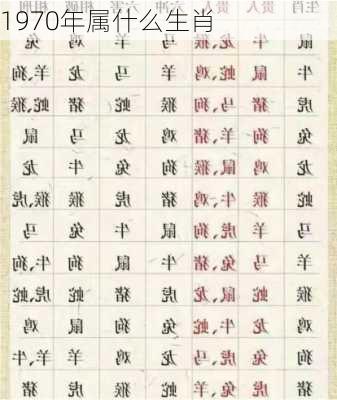 1970年属什么生肖
生肖 贵人 贵人 六冲 六害 相破 相刑
鼠 牛 龙、猴 马 羊 鸡 兔
牛 鼠 蛇、鸡 羊 马 龙 羊、狗
虎 猪 马、狗 猴 蛇 猪 蛇、猴
兔 狗 羊、猪 鸡 龙 马 鼠
龙 鸡 鼠、猴 狗 兔 牛 龙
蛇 猴 牛、鸡 猪 虎 猴 虎、猴
马 羊 虎、狗 鼠 牛 兔 马
羊 马 兔、猪 牛 鼠 狗 牛、狗
猴 蛇 鼠、龙 虎 猪 蛇 虎、蛇
鸡 龙 牛、蛇 兔 狗 鼠 鸡
狗 兔 虎、马 龙 鸡 羊 牛、羊
猪 虎 兔、羊 蛇 猴 虎 猪